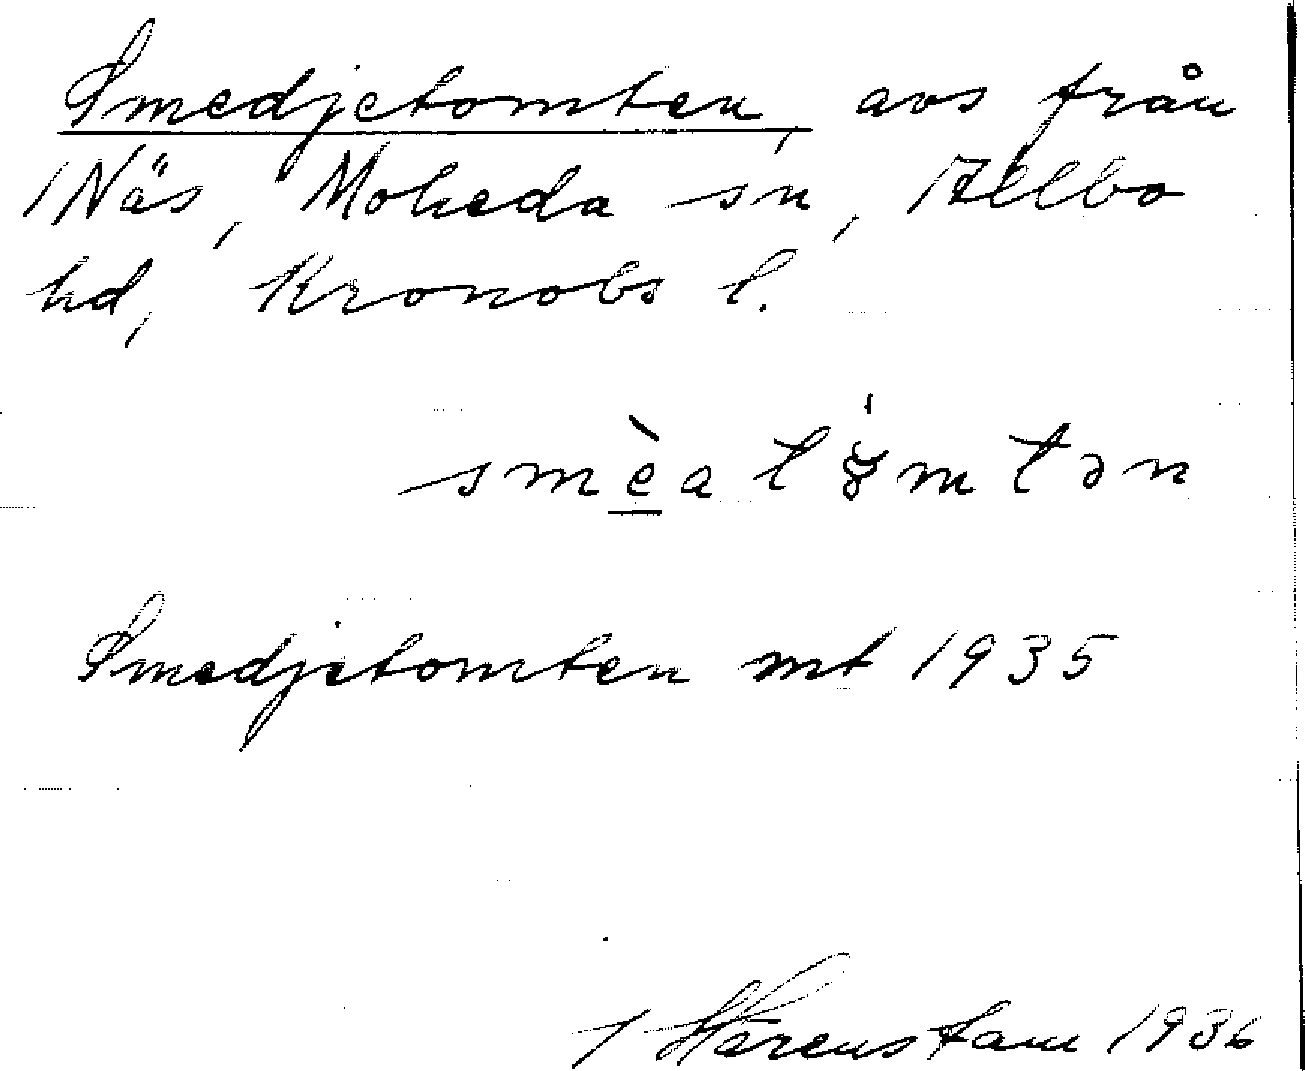 Smedjetomten, avs från
Näs, Moheda sn, Allbo
hd, Kronobs l.
smèatómtən
Smedjetomten mt 1935
Härenstam 1936